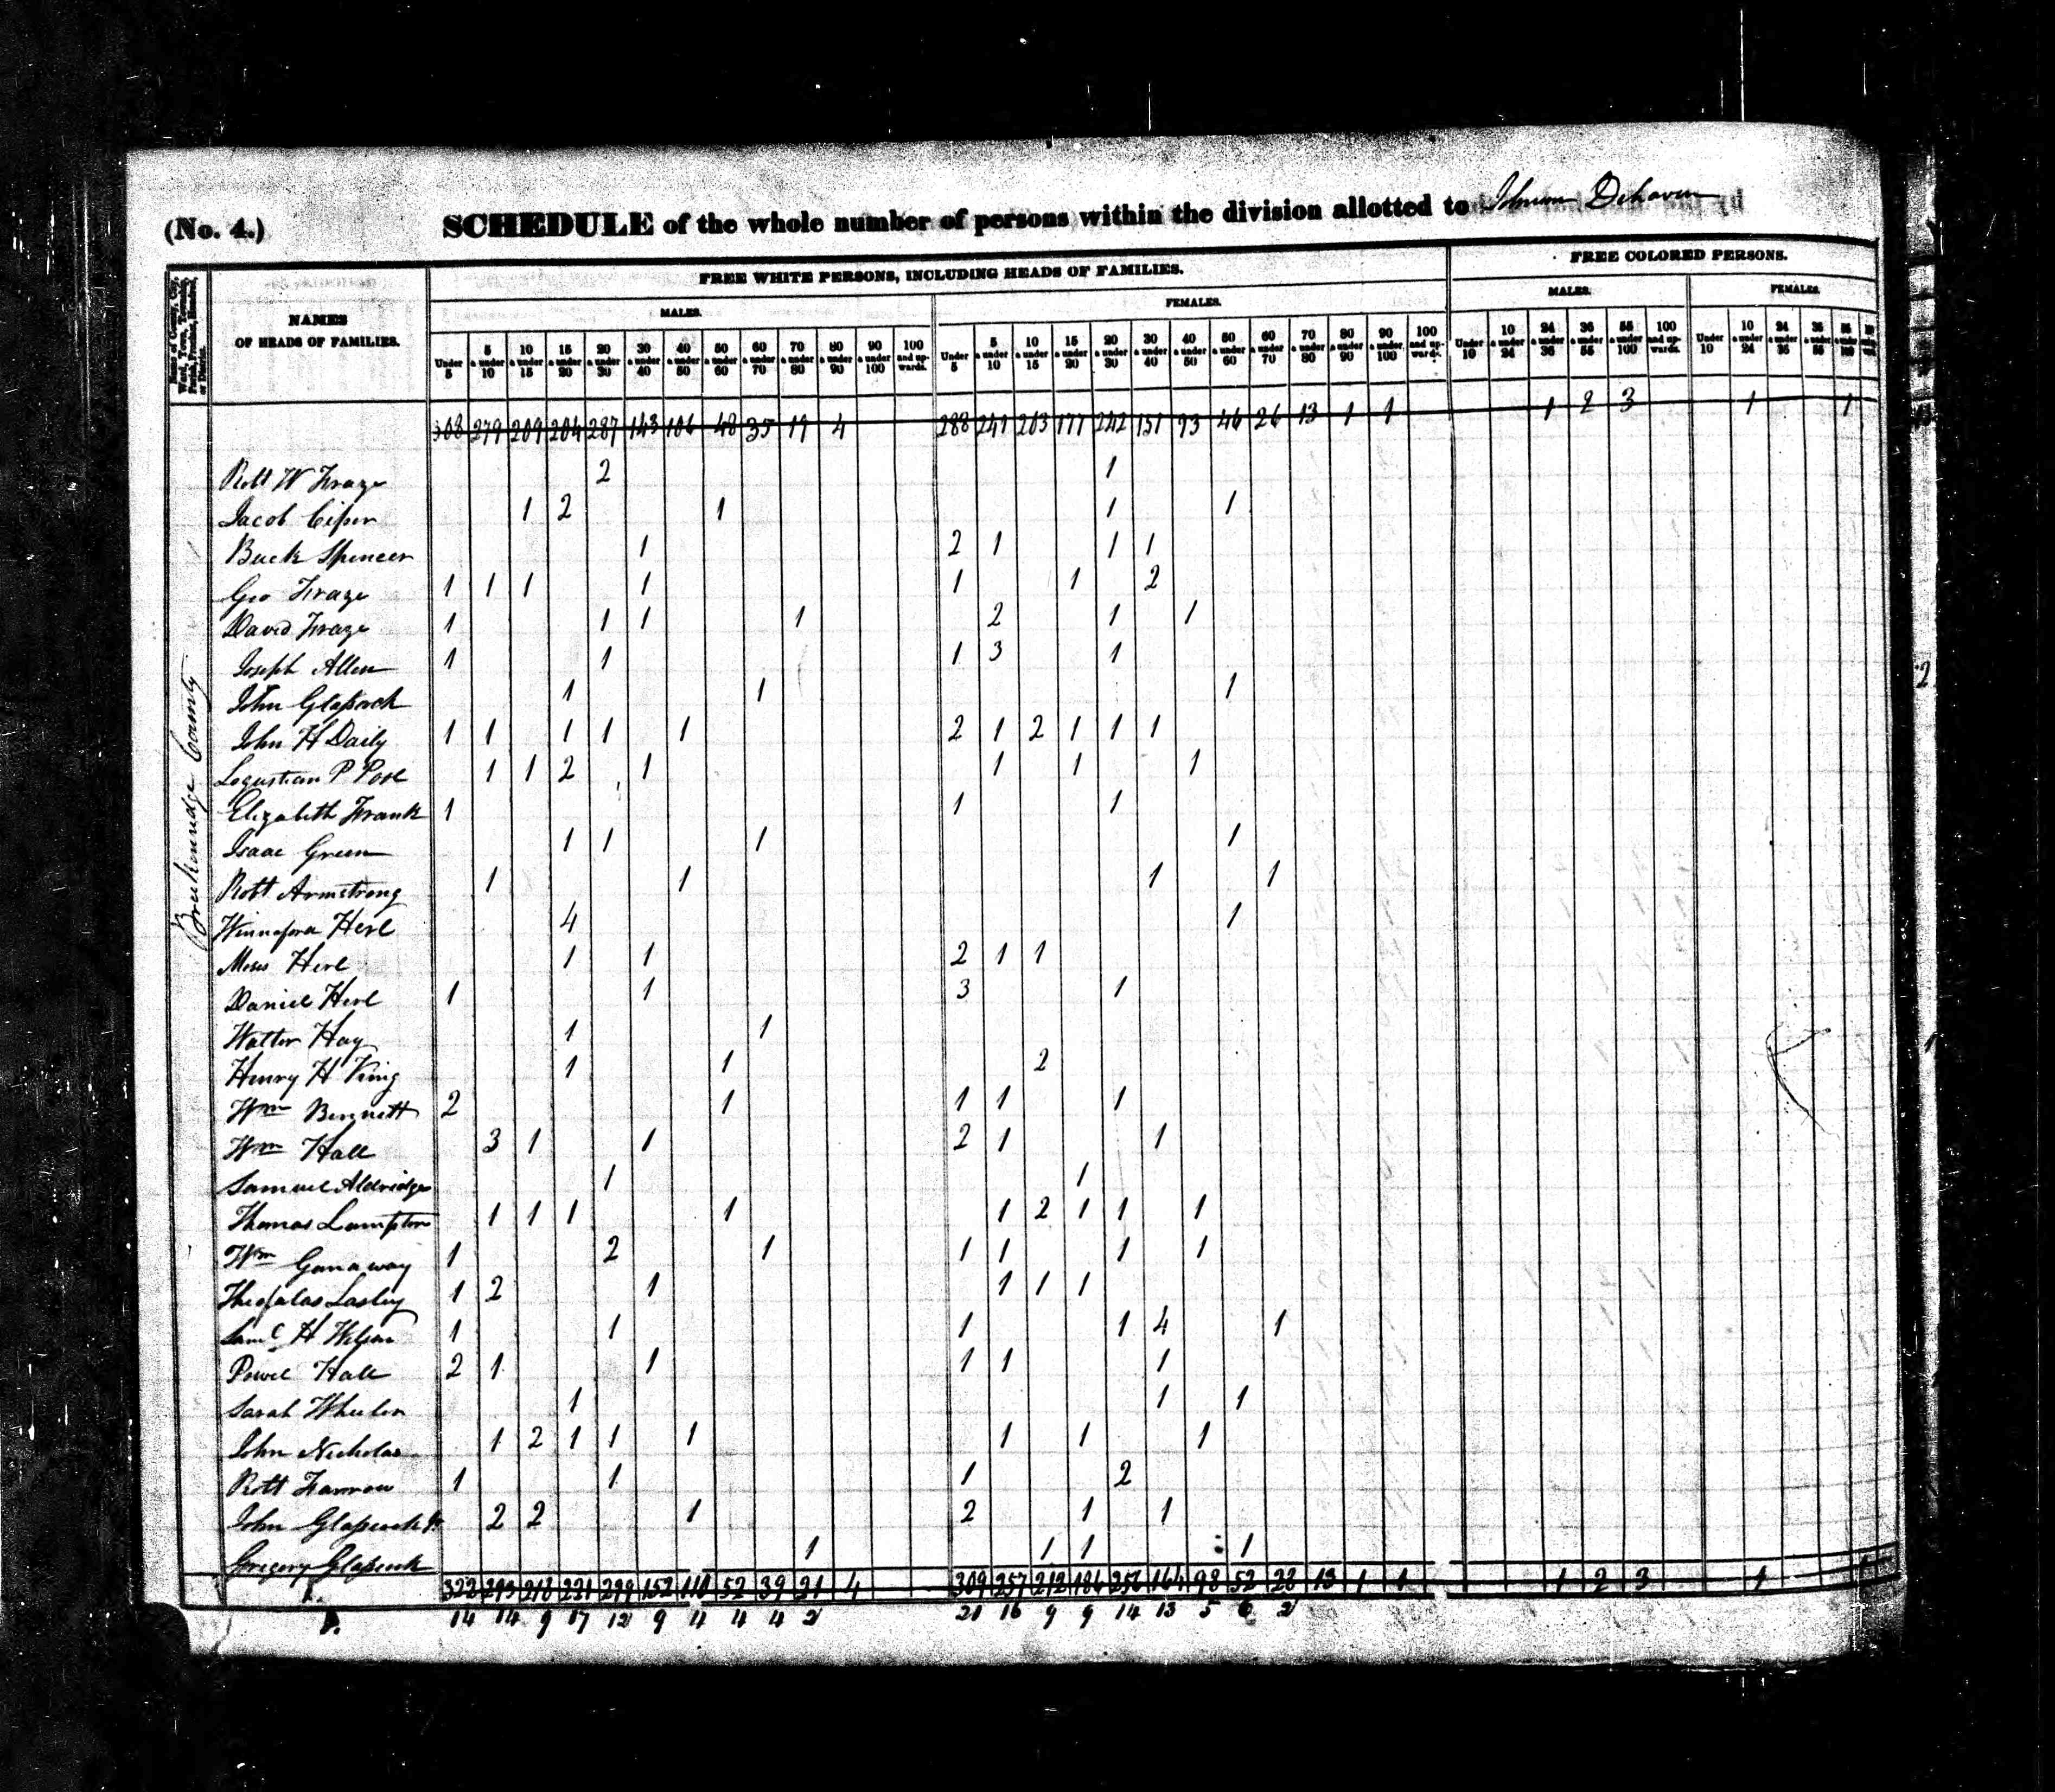 (No. 4.) SCHEDULE of the whole number of persons within the division allotted to Johnson Dehaven
FREE WHITE PERSONS, INCLUDING HEADS OF FAMILIES. FREE COLORED PERSONS.
NAMES OF HEADS OF FAMILIES. MALES. FEMALES. MALES. FEMALES.
Under 5 5 & under 10 10 & under 15 15 & under 20 20 & under 30 30 & under 40 40 & under 50 50 & under 60 60 & under 70 70 & under 80 80 & under 90 90 & under 100 100 and upwards. Under 5 5 & under 10 10 & under 15 15 & under 20 20 & under 30 30 & under 40 40 & under 50 50 & under 60 60 & under 70 70 & under 80 80 & under 90 90 & under 100 100 and upwards. Under 10 10 & under 24 24 & under 36 36 & under 55 55 & under 100 100 and upwards. Under 10 10 & under 24 24 & under 36 36 & under 55 55 & under 100
308 279 209 204 287 143 106 48 35 19 4 288 241 203 177 242 151 93 46 26 13 1 1 1 2 3 1 1
Breckenridge County
Robt W Fraze 2 1
Jacob 1 2 1 1 1
Buck Spencer 1 2 1 1 1
Geo Fraze 1 1 1 1 1 1 2
David Fraze 1 1 1 1 2 1 1
Joseph Allen 1 1 1 3 1
John Glascock 1 1 1
John H Daily 1 1 1 1 1 2 1 2 1 1 1
P 1 1 2 1 1 1 1
Elizabeth Frank 1 1 1
Isaac Green 1 1 1 1
Robt Armstrong 1 1 1 1
Winnafora Herl 4 1
Moses Herl 1 1 2 1 1
Daniel Herl 1 1 3 1
Walter Hay 1 1
Henry H King 1 1 2
Wm Bennett 2 1 1 1 1
Wm Hall 3 1 1 2 1 1
Samuel Aldridge 1 1
Thomas Lampton 1 1 1 1 1 2 1 1 1
Wm Ganaway 1 2 1 1 1 1 1
Lasley 1 2 1 1 1 1
Saml H Wilson 1 1 1 1 4 1
Powel Hall 2 1 1 1 1 1
Sarah Wheeler 1 1 1
John Nicholas 1 2 1 1 1 1 1 1
Robt Farrow 1 1 1 2
John Glascock Jr 2 2 1 2 1 1
Gregory Glascock 1 1 1 1
322 293 218 221 299 152 110 52 39 21 4 309 257 212 186 256 164 98 52 28 13 1 1 1 2 3 1 1
14 14 9 17 12 9 4 4 4 2 21 16 9 9 14 13 5 6 2